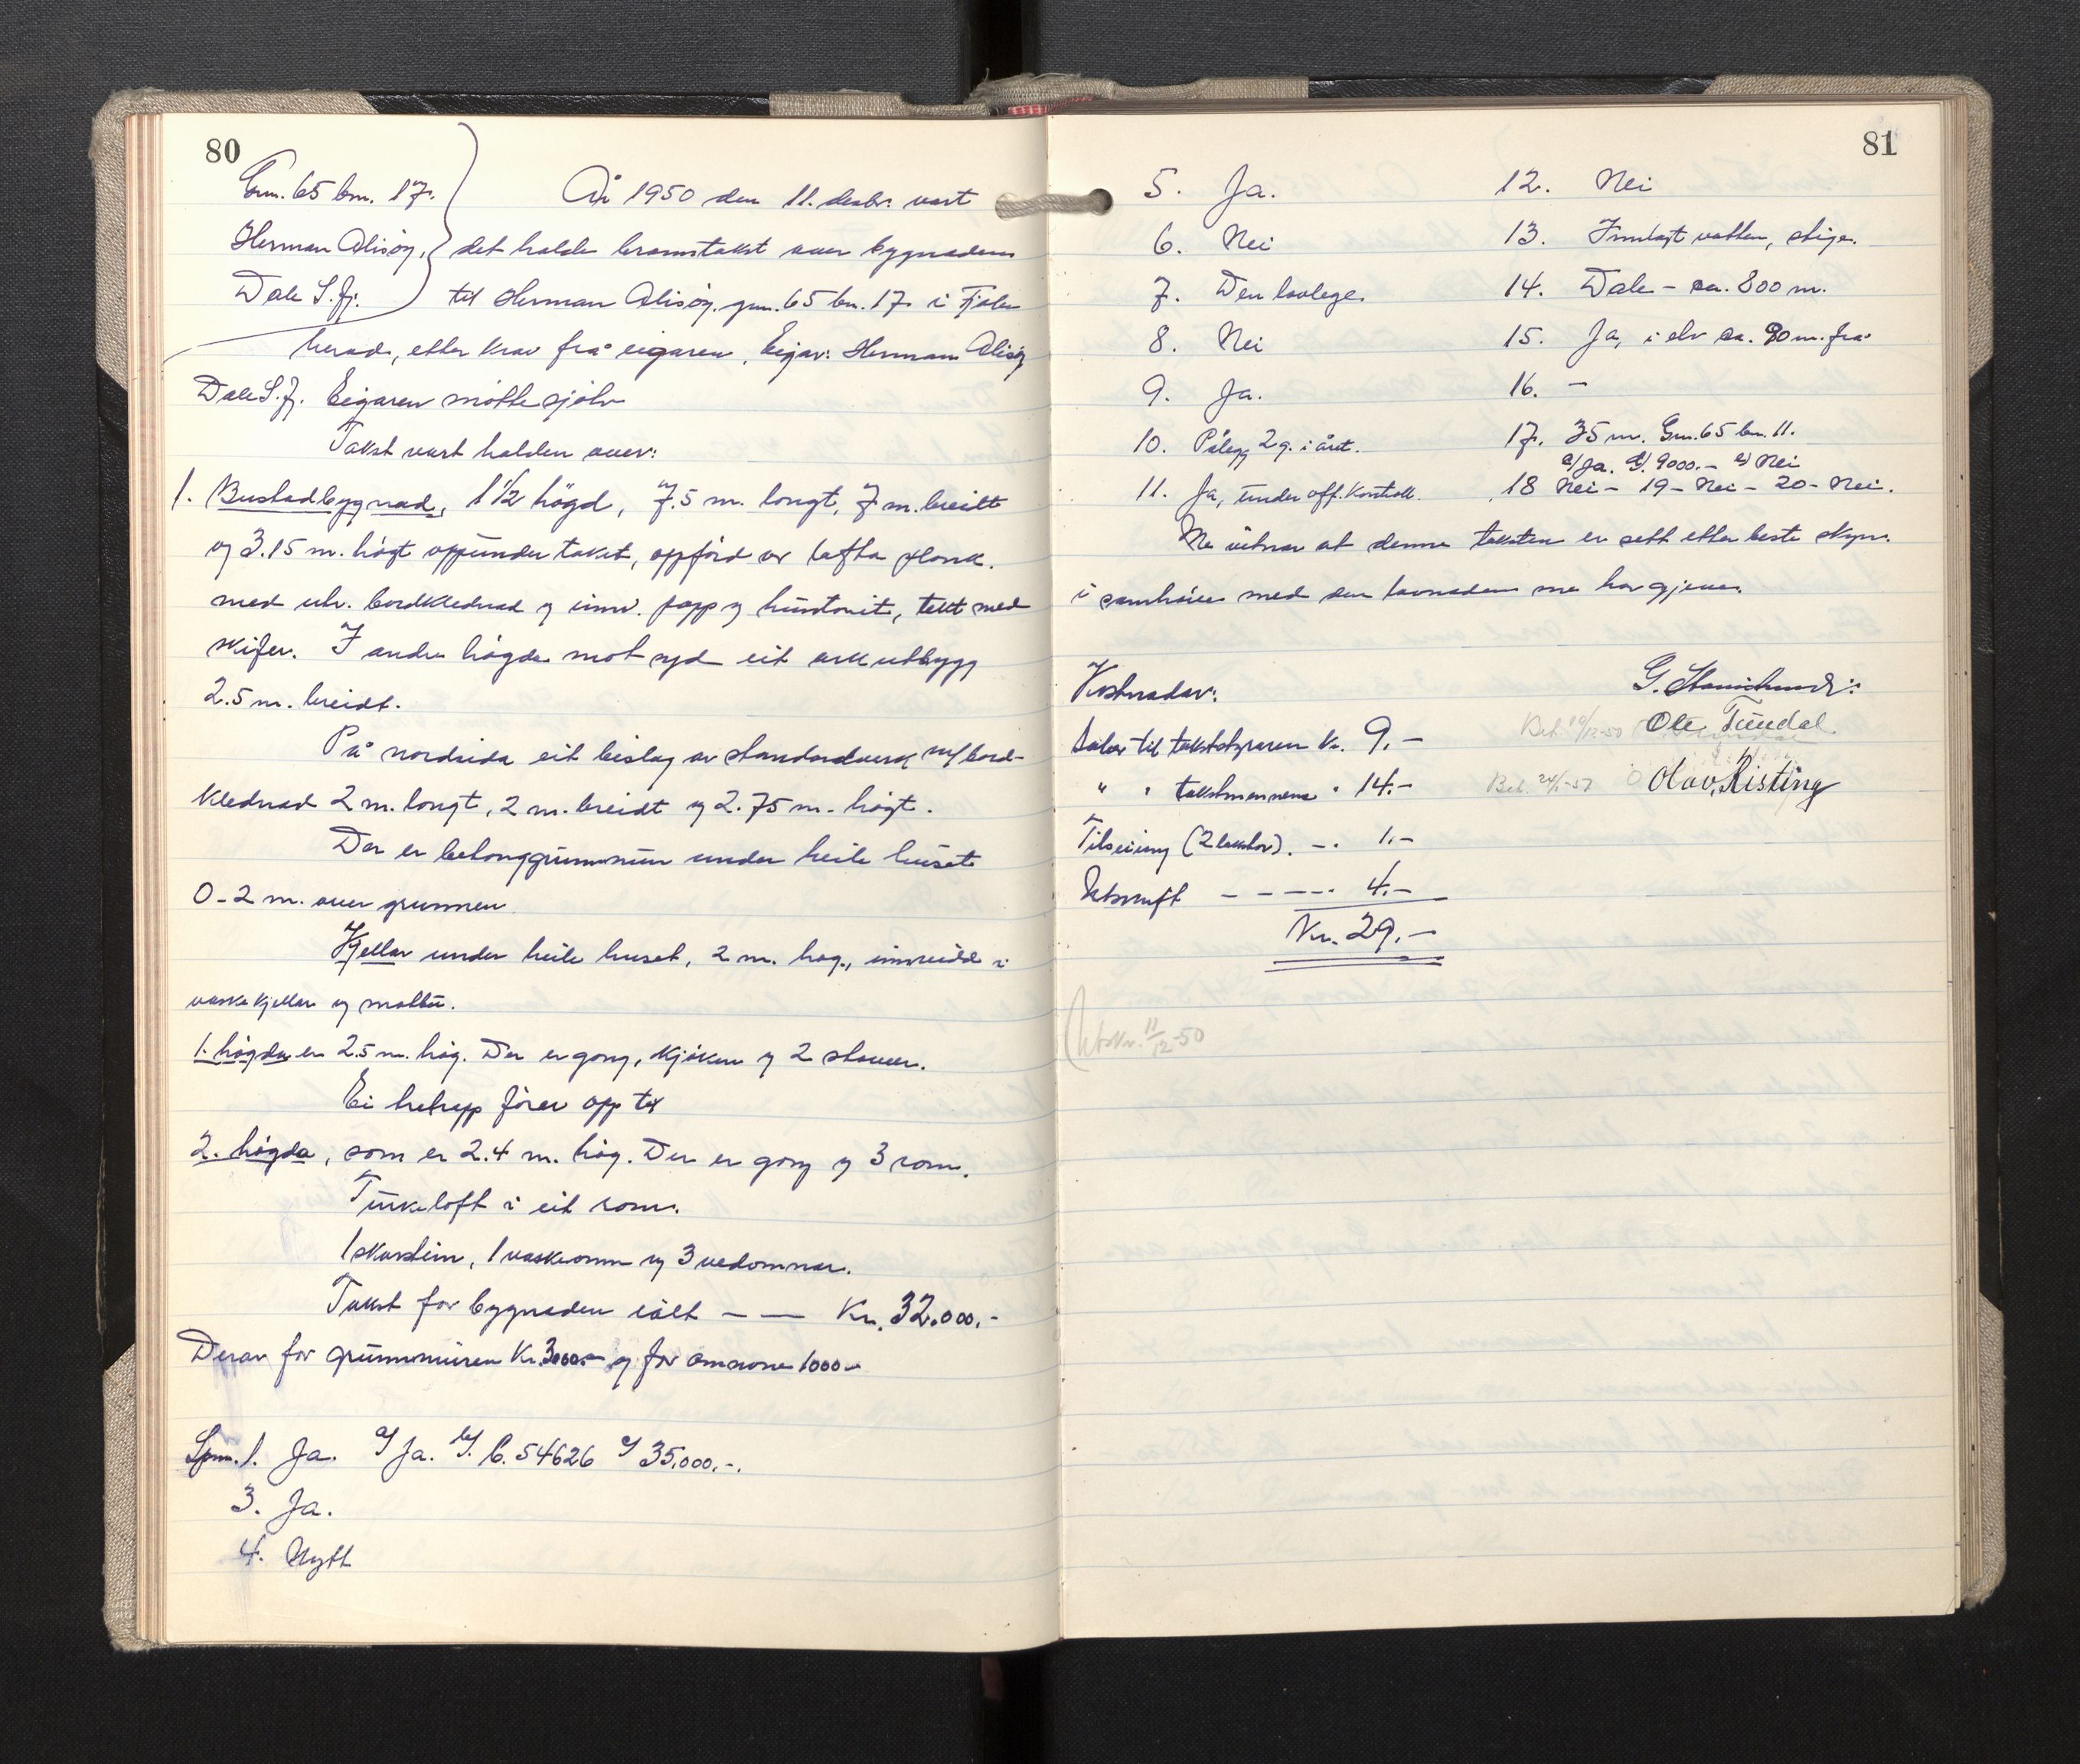 80
Gnr. 65 bnr. 17.
Herman Alisøy,
Dale S.fj.
År 1950 den 11. desbr. vart
det halde branntakst over bygnadene
til Herman Alisøy. gnr. 65 bn. 17 i Fjaler
herad, etter krav frå eigaren. Eigar: Herman Alisøy
Dale S.fj. Eigaren møtte sjølv
Takst vart halden over:
1. Bustadbygnad, 1 1/2 högd, 7.5 m. langt, 7 m. breidt
og 3.15 m. högt oppunder taket, oppförd av lafta plank.
med utv. bordklednad og innv. papp og huntonit, tekt med
skifer. I andre högda mot syd eit ark utbygg
2.5 m. breidt.
På nordsida eit bislag av standardverk m/bord-
klednad 2 m. langt, 2 m. breidt og 2.75 m. högt.
Der er betonggrunnmur under heile huset
0-2 m. over grunnen
Kjellar under heile huset, 2 m. høg., innreidd i
vaskekjellar og matbu.
1. högda er 2.5 m. høg. Der er gang, kjöken og 2 stover.
Ei tretrapp förer opp til
2. högda, som er 2.4 m. høg. Der er gang og 3 rom.
Turkeloft i eit rom.
1 skorstein, 1 vaskeomn og 3 vedomnar.
Takst for bygnaden ialt — — Kr. 32.000.-
Derav for grunnmuren Kr. 3000.- og for omnane 1000.-
Spm. 1. Ja. a/ Ja. b/. C. 54626 c/ 35.000.-.
3. Ja.
4. Nytt
81
5. Ja.
6. Nei
7. Den lovlege.
8. Nei
9. Ja.
10. Pålegg 2 g. i året.
11. Ja, under off. kontroll.
12. Nei
13. Innlagt vatten, stige.
14. Dale - ca. 800 m.
15. Ja, i elv ca. 90 m. frå
16. -
17. 35 m. Gnr. 65 bn. 11.
a/ Ja. d/ 9000.- e/ Nei
18 Nei - 19 - Nei - 20 - Nei.
Me vitnar at denne taksten er sett etter beste skjøn.
i samhöve med den lovnaden me har gjeve.
Kostnadar:
Salær til takststyraren kr. 9.-
" " takstmennene " 14.-
Tilseiing (2 takstar). -. 1.-
Utskrift - - - -. 4.-
Kr. 29.-
Bet. 19/12-50 Ole Tundal
Bet. 24/1-51 Olav Risting
Utskr. 11/12-50